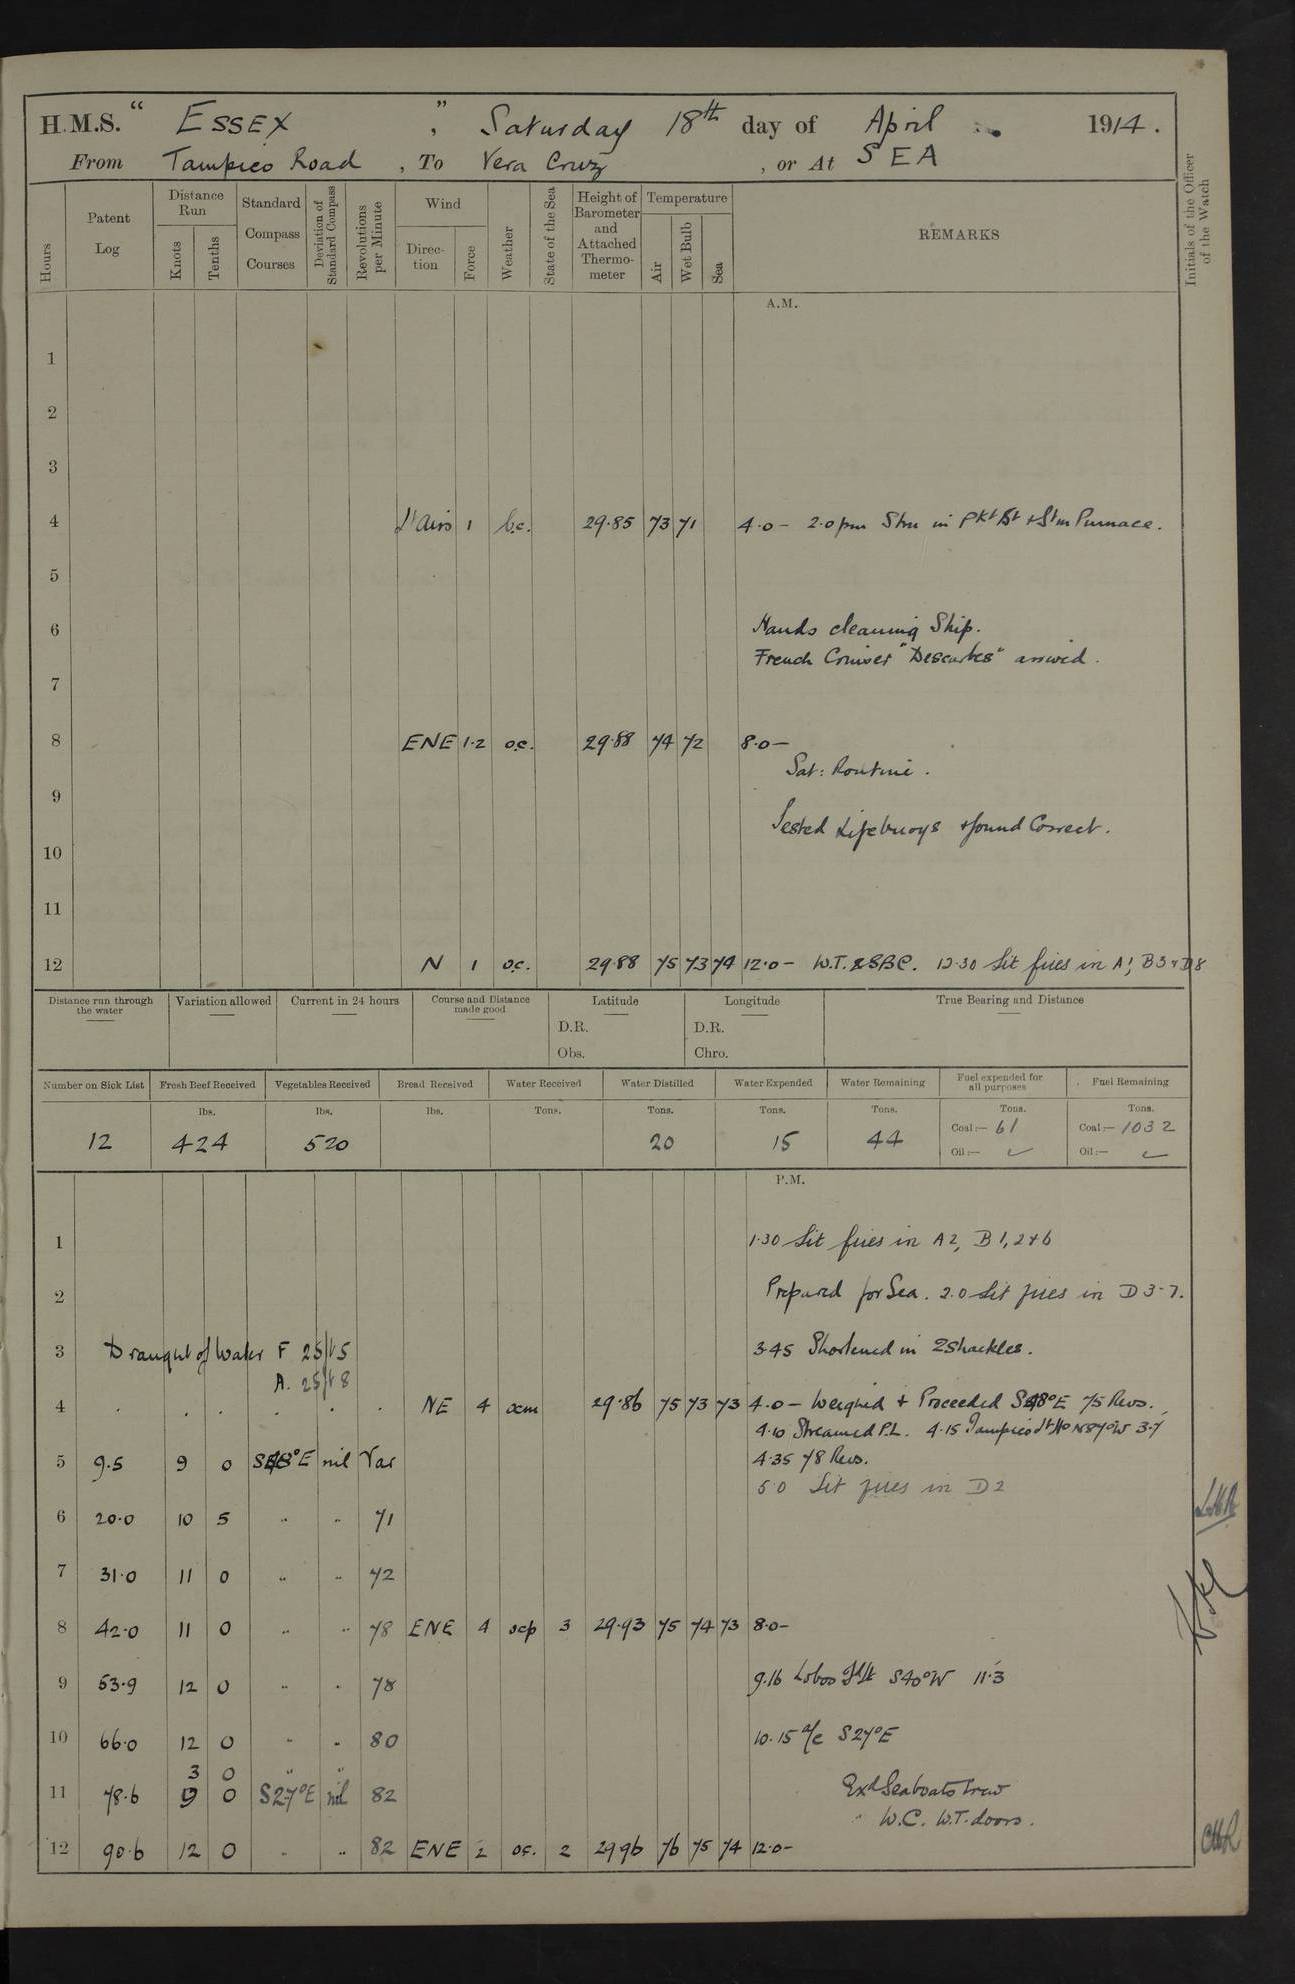 H.M.S. " ESSEX ", Saturday 18th day of April 1914.
From Tampico Road, To Vera Cruz, or At SEA
Hours
Patent Log
Distance Run
Knots
Tenths
Standard Compass Courses
Deviation of Standard Compass
Revolutions per Minute
Wind
Direction
Force
Weather
State of the Sea
Height of Barometer and Attached Thermometer
Temperature
Air
Wet Bulb
Sea
REMARKS
Initials of the Officer of the Watch
A.M.
1
2
3
4 Lt Airs 1 b.c. 29.85 73 71 4.0 - 2.0 pm Stm in Pkt Bt + Stm Pinnace.
5
6 Hands cleaning Ship.
French Cruiser "Descartes" arrived.
7
8 ENE 1.2 o.c. 29.88 74 72 8.0 -
Sat: Routine.
9
Tested Lifebuoys + found Correct.
10
11
12 N 1 o.c. 29.88 75 73 74 12.0 - W.T. & SBC. 12.30 Lit fires in A1, B3 + D8
Distance run through the water
Variation allowed
Current in 24 hours
Course and Distance made good
Latitude
D.R.
Obs.
Longitude
D.R.
Chro.
True Bearing and Distance
Number on Sick List
Fresh Beef Received
Vegetables Received
Bread Received
Water Received
Water Distilled
Water Expended
Water Remaining
Fuel expended for all purposes
Fuel Remaining
lbs. lbs. lbs. Tons. Tons. Tons. Tons. Tons. Tons.
12 424 520 20 15 44 Coal:— 61 Coal:— 1032
Oil:— Oil:—
P.M.
1 1.30 Lit fires in A2, B1, 2 + 6
2 Prepared for Sea. 2.0 Lit fires in D 3-7.
3 Draught of Water F 25ft 5 3.45 Shortened in 2 Shackles.
A. 25ft 8
4 NE 4 ocm 29.86 75 73 73 4.0 - Weighed + Proceeded S48°E 75 Revs.
4.10 Streamed P.L. 4.15 Tampico Lt Ho N87°W 3.7
5 9.5 9 0 S48°E nil Var 4.35 78 Revs.
5.0 Lit fires in D2
6 20.0 10 5 " " 71
7 31.0 11 0 " " 72
8 42.0 11 0 " " 78 ENE 4 ocp 3 29.93 75 74 73 8.0 -
9 53.9 12 0 " " 78 9.16 Lobos Id Lt S40°W 11.3
10 66.0 12 0 " " 80 10.15 a/c S27°E
3 0 " "
11 78.6 9 0 S27°E nil 82 Exd Seaboats Crew
" W.C. W.T. doors.
12 90.6 12 0 " " 82 ENE 2 oc. 2 29.96 76 75 74 12.0 -